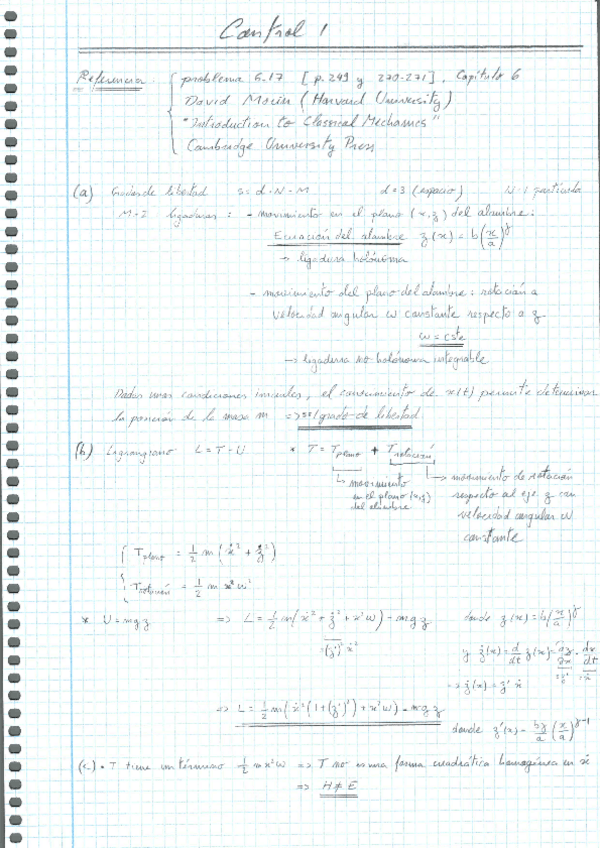 Control 1
Referencia. problema 6.17 [p. 249 y 270-271], Capítulo 6
David Morin (Harvard University)
"Introduction to Classical Mechanics"
Cambridge University Press
(a) Grados de libertad s = d·N - M d = 3 (espacio) N = 1 partícula
M = 2 ligaduras : - movimiento en el plano (x,z) del alambre :
Ecuación del alambre z(x) = b(x/a)^γ
→ ligadura holónoma
- movimiento del plano del alambre : rotación a
velocidad angular ω constante respecto a z.
ω = cste
→ ligadura no holónoma integrable
Dadas unas condiciones iniciales, el conocimiento de x(t) permite determinar
la posición de la masa m => s = 1 grado de libertad
(b) Lagrangiano L = T - U * T = Tplano + Trotación
↳ movimiento en el plano (x,z) del alambre
↳ movimiento de rotación
respecto al eje z con
velocidad angular ω
constante
Tplano = 1/2 m (ẋ² + ż²)
Trotación = 1/2 m x²ω²
* U = mgz => L = 1/2 m(ẋ² + ż² + x²ω²) - mgz donde z(x) = b(x/a)^γ
= (z')² ẋ²
y ż(x) = d/dt z(x) = dz/dx · dx/dt
= z' = ẋ
→ ż(x) = z' ẋ
=> L = 1/2 m(ẋ²(1 + (z')²) + x²ω²) - mgz
donde z'(x) = bγ/a (x/a)^γ-1
(c) • T tiene un término 1/2 m x²ω² => T no es una forma cuadrática homogénea en ẋ
=> H ≠ E